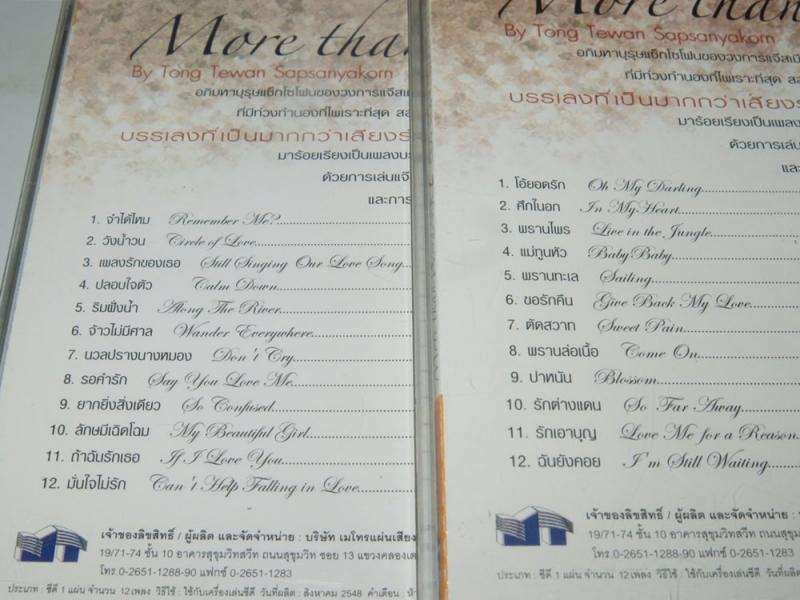 More than
By Tong Tewan Sapsanyakorn
อภิมหาบุรุษแซ็กโซโฟนของวงการแจ๊สเมื
ที่มีท่วงทำนองที่ไพเราะที่สุด
บรรเลงที่เป็นมากกว่าเสียง
มาร้อยเรียงเป็นเพลง
ด้วยการเล่น
และการ
1. จำได้ไหม Remember Me?
2. วังน้ำวน Circle of Love
3. เพลงรักของเธอ Still Singing Our Love Song
4. ปลอบใจตัว Calm Down
5. ริมฝั่งน้ำ Along The River
6. จ้าวไม่มีศาล Wander Everywhere
7. นวลปรางนางหมอง Don't Cry
8. รอคำรัก Say You Love Me
9. ยากยิ่งสิ่งเดียว So Confused
10. ลักษมีเฉิดโฉม My Beautiful Girl
11. ถ้าฉันรักเธอ If I Love You
12. มั่นใจไม่รัก Can't Help Falling in Love
เจ้าของลิขสิทธิ์ / ผู้ผลิต และจัดจำหน่าย : บริษัท เมโทรแผ่นเสียง
19/71-74 ชั้น 10 อาคารสุขุมวิทสวีท ถนนสุขุมวิท ซอย 13 แขวงคลองเต
โทร.0-2651-1288-90 แฟกซ์ 0-2651-1283
ประเภท : ซีดี 1 แผ่น จำนวน 12 เพลง วิธีใช้ : ใช้กับเครื่องเล่นซีดี วันที่ผลิต : สิงหาคม 2548 คำเตือน :
More than
By Tong Tewan Sapsanyakorn
อภิมหาบุรุษแซ็กโซโฟนของวงการแจ๊สเมื
ที่มีท่วงทำนองที่ไพเราะที่สุด
บรรเลงที่เป็นมากกว่าเสียง
มาร้อยเรียงเป็นเพลง
ด้วยการเล่น
และ
1. โอ้ยอดรัก Oh My Darling
2. ศึกในอก In My Heart
3. พรานไพร Live in the Jungle
4. แม่ทูนหัว Baby Baby
5. พรานทะเล Sailing
6. ขอรักคืน Give Back My Love
7. ตัดสวาท Sweet Pain
8. พรานล่อเนื้อ Come On
9. ปาหนัน Blossom
10. รักต่างแดน So Far Away
11. รักเอาบุญ Love Me for a Reason
12. ฉันยังคอย I'm Still Waiting
เจ้าของลิขสิทธิ์ / ผู้ผลิต และจัดจำหน่าย :
19/71-74 ชั้น 10 อาคารสุขุมวิทสวีท ถนนสุขุม
โทร.0-2651-1288-90 แฟกซ์ 0-2651-
ประเภท : ซีดี 1 แผ่น จำนวน 12 เพลง วิธีใช้ : ใช้กับเครื่องเล่นซีดี วันที่ผลิต